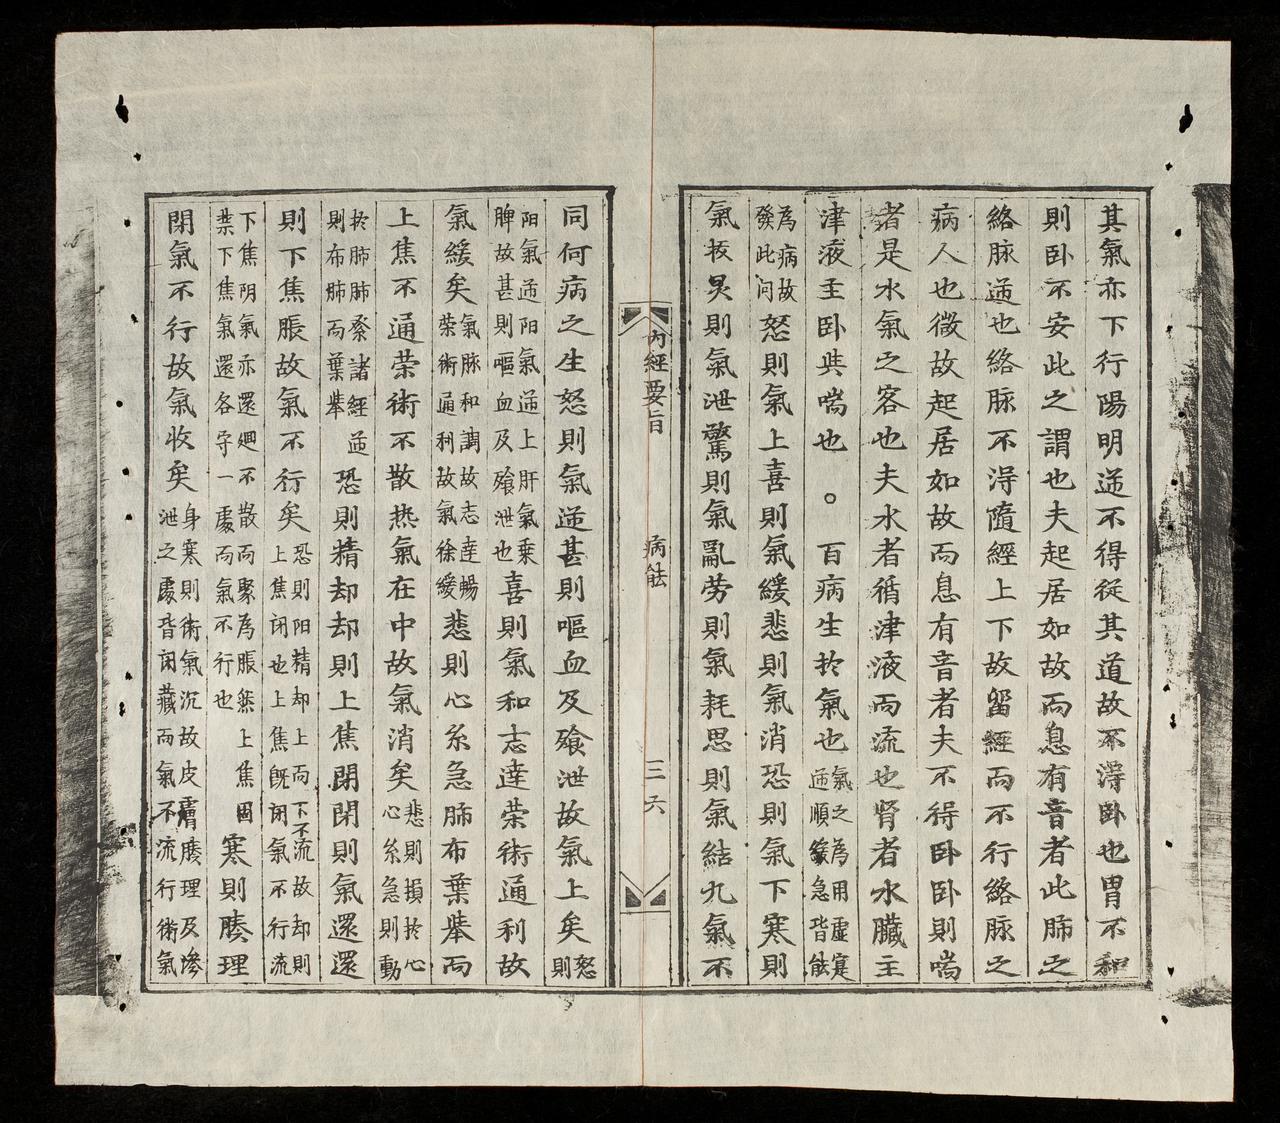 其氣亦下行陽明逆不得從其道故不淂卧也胃不和
則卧不安此之謂也夫起居如故而息有音者此肺之
絡脉逆也絡脉不淂隨經上下故留經而不行絡脉之
病人也微故起居如故而息有音者夫不得卧卧則喘
者是水氣之客也夫水者循津液而流也腎者水臟主
津液主卧與喘也 。 百病生於氣也氣之為用虛寔逆順緩急皆能
為病故發此问怒則氣上喜則氣緩悲則氣消恐則氣下寒則
氣收炅則氣泄驚則氣亂勞則氣耗思則氣結九氣不
内經要旨 病能 三六
同何病之生怒則氣逆甚則嘔血及飱泄故氣上矣怒則
阳氣逆阳氣逆上肝氣乘脾故甚則嘔血及飱泄也喜則氣和志達荣術通利故
氣緩矣氣脉和調故志達暢荣術通利故氣徐緩悲則心系急肺布葉舉而
上焦不通荣術不散热氣在中故氣消矣悲則損於心心系急則動
於肺肺系諸經逆則布肺而葉舉恐則精却却則上焦閉閉則氣還還
則下焦脹故氣不行矣恐則阳精却上而下不流故却則上焦闭也上焦既闭氣不行流
下焦阴氣亦還廻不散而聚為脹然上焦固禁下焦氣還各守一處而氣不行也寒則腠理
閉氣不行故氣收矣身寒則術氣沉故皮膚腠理及滲泄之處皆闭藏而氣不流行術氣